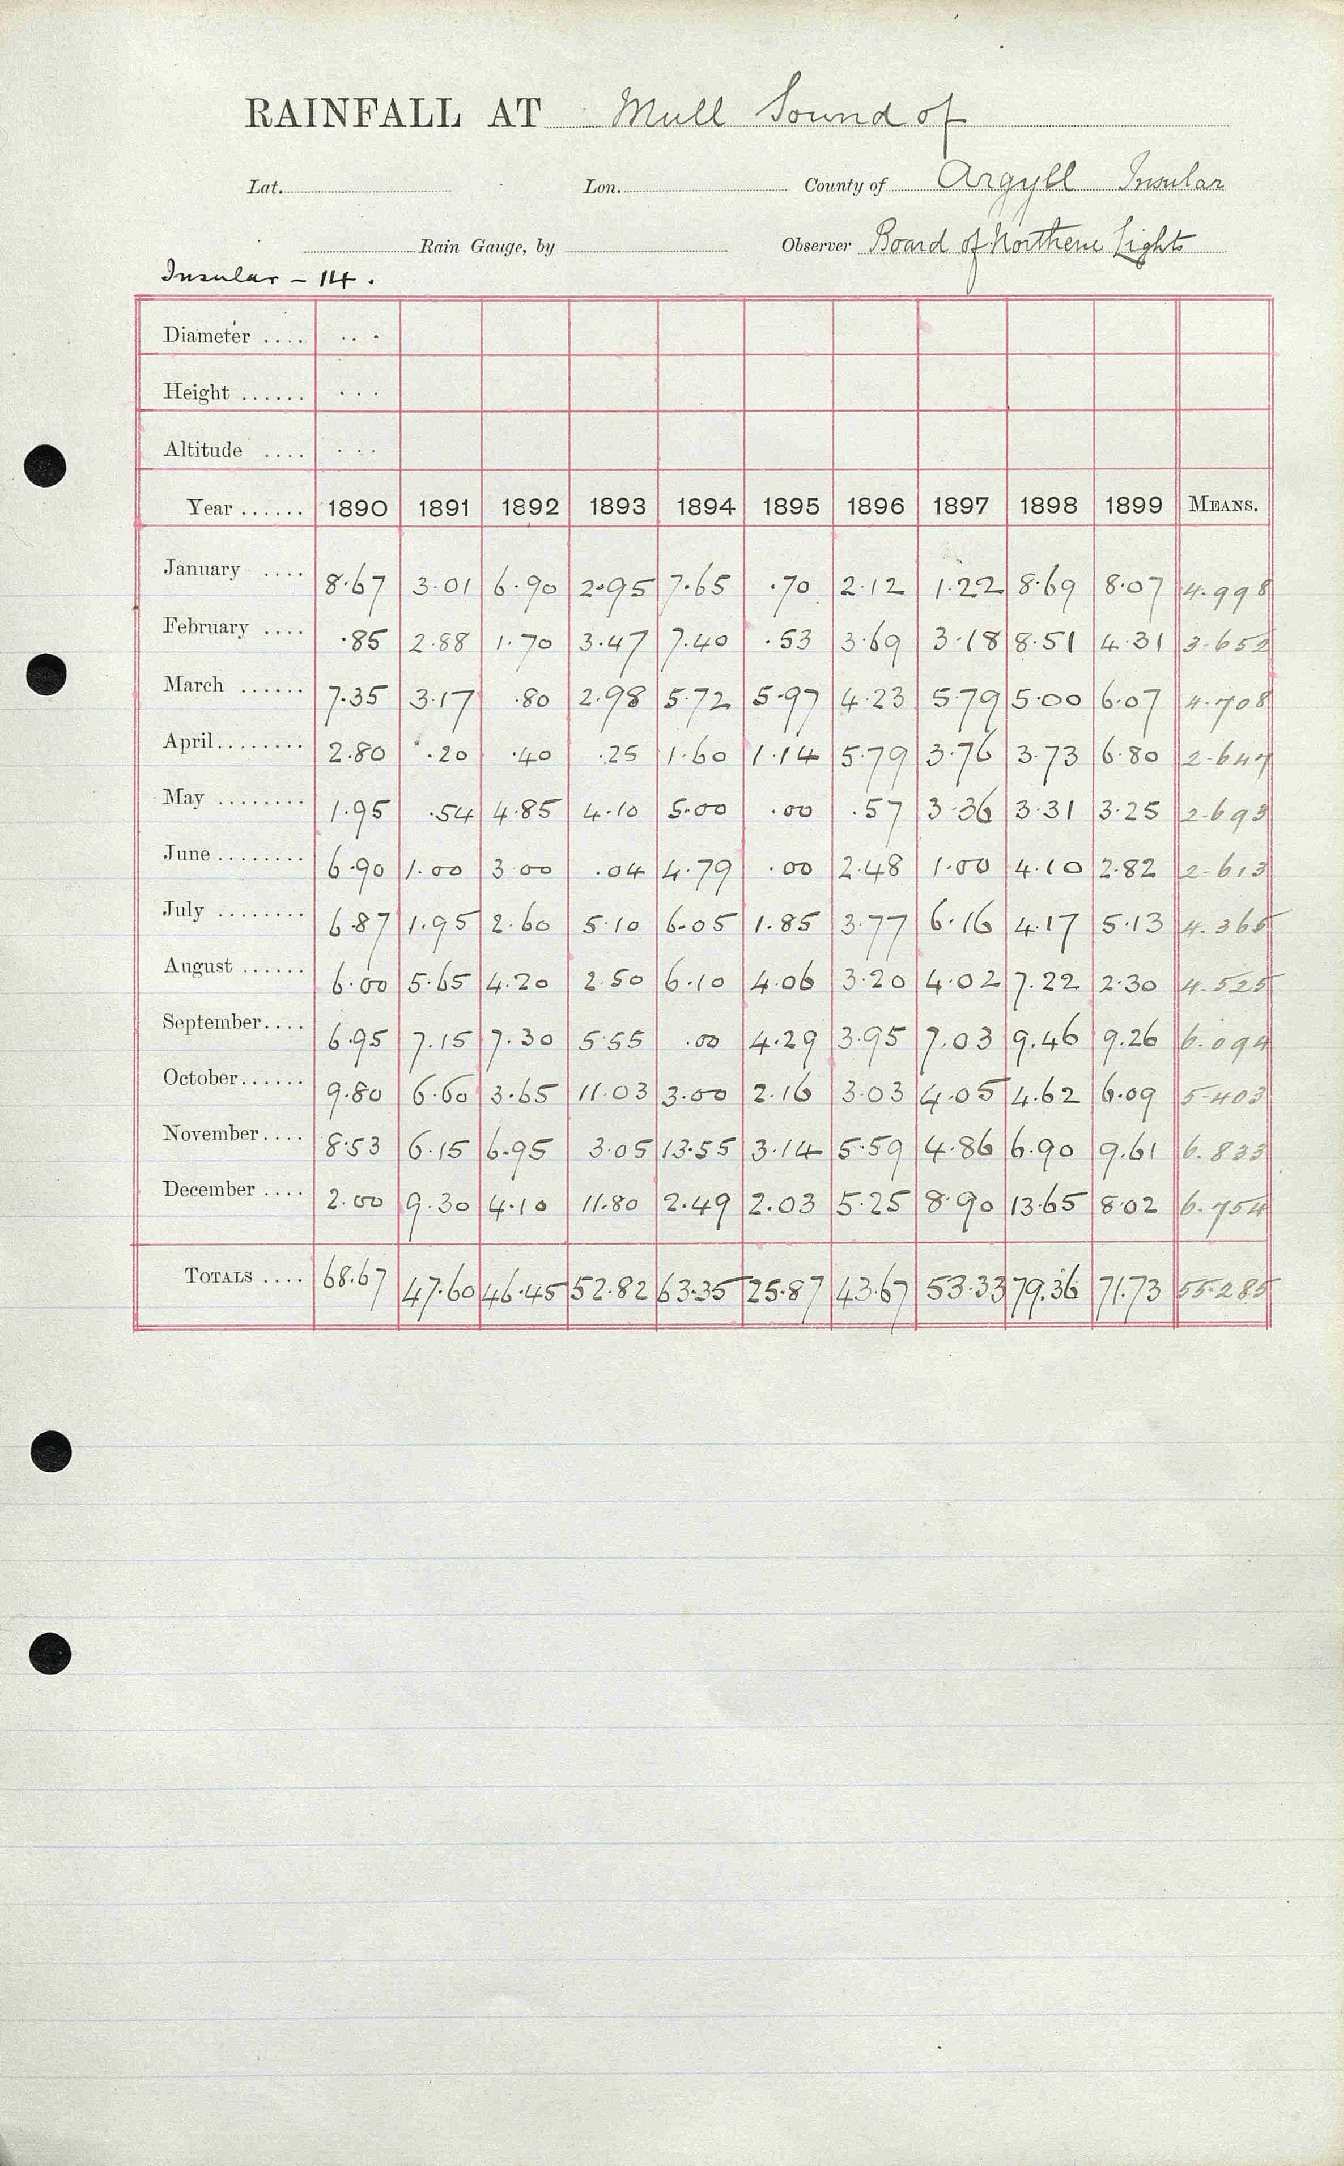 RAINFALL AT Mull Sound of
Lat. Lon. County of Argyll Insular
Rain Gauge, by Observer Board of Northern Lights
Insular - 14.
Diameter .... ...
Height ...... ...
Altitude .... ...
Year ...... 1890 1891 1892 1893 1894 1895 1896 1897 1898 1899 MEANS.
January .... 8.67 3.01 6.90 2.95 7.65 .70 2.12 1.22 8.69 8.07 4.998
February .... .85 2.88 1.70 3.47 7.40 .53 3.69 3.18 8.51 4.31 3.652
March ...... 7.35 3.17 .80 2.98 5.72 5.97 4.23 5.79 5.00 6.07 4.708
April........ 2.80 .20 .40 .25 1.60 1.14 5.79 3.76 3.73 6.80 2.647
May ........ 1.95 .54 4.85 4.10 5.00 .00 .57 3.36 3.31 3.25 2.693
June ........ 6.90 1.00 3.00 .04 4.79 .00 2.48 1.00 4.10 2.82 2.613
July ........ 6.87 1.95 2.60 5.10 6.05 1.85 3.77 6.16 4.17 5.13 4.365
August ...... 6.00 5.65 4.20 2.50 6.10 4.06 3.20 4.02 7.22 2.30 4.525
September.... 6.95 7.15 7.30 5.55 .00 4.29 3.95 7.03 9.46 9.26 6.094
October...... 9.80 6.60 3.65 11.03 3.00 2.16 3.03 4.05 4.62 6.09 5.403
November.... 8.53 6.15 6.95 3.05 13.55 3.14 5.59 4.86 6.90 9.61 6.833
December .... 2.00 9.30 4.10 11.80 2.49 2.03 5.25 8.90 13.65 8.02 6.754
TOTALS .... 68.67 47.60 46.45 52.82 63.35 25.87 43.67 53.33 79.36 71.73 55.285